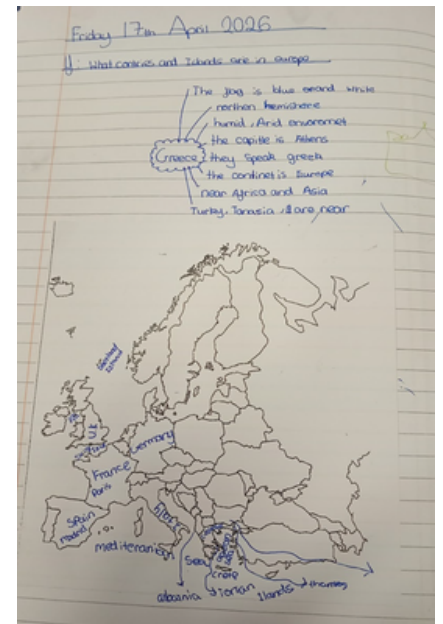 Friday 17th April 2026
If: What contries and Islands are in europe
The flag is blue and white
northen hemishere
humid, Arid enviromet
the capitle is Athens
Greece
they speak greek
the contined is Europe
near Africa and Asia
Turkey, Tanasia, are near
U.K
Germany
France
Paris
Spain
madrid
Italy
mediteranian
Sea
crete
albaania
ionian
Ilands